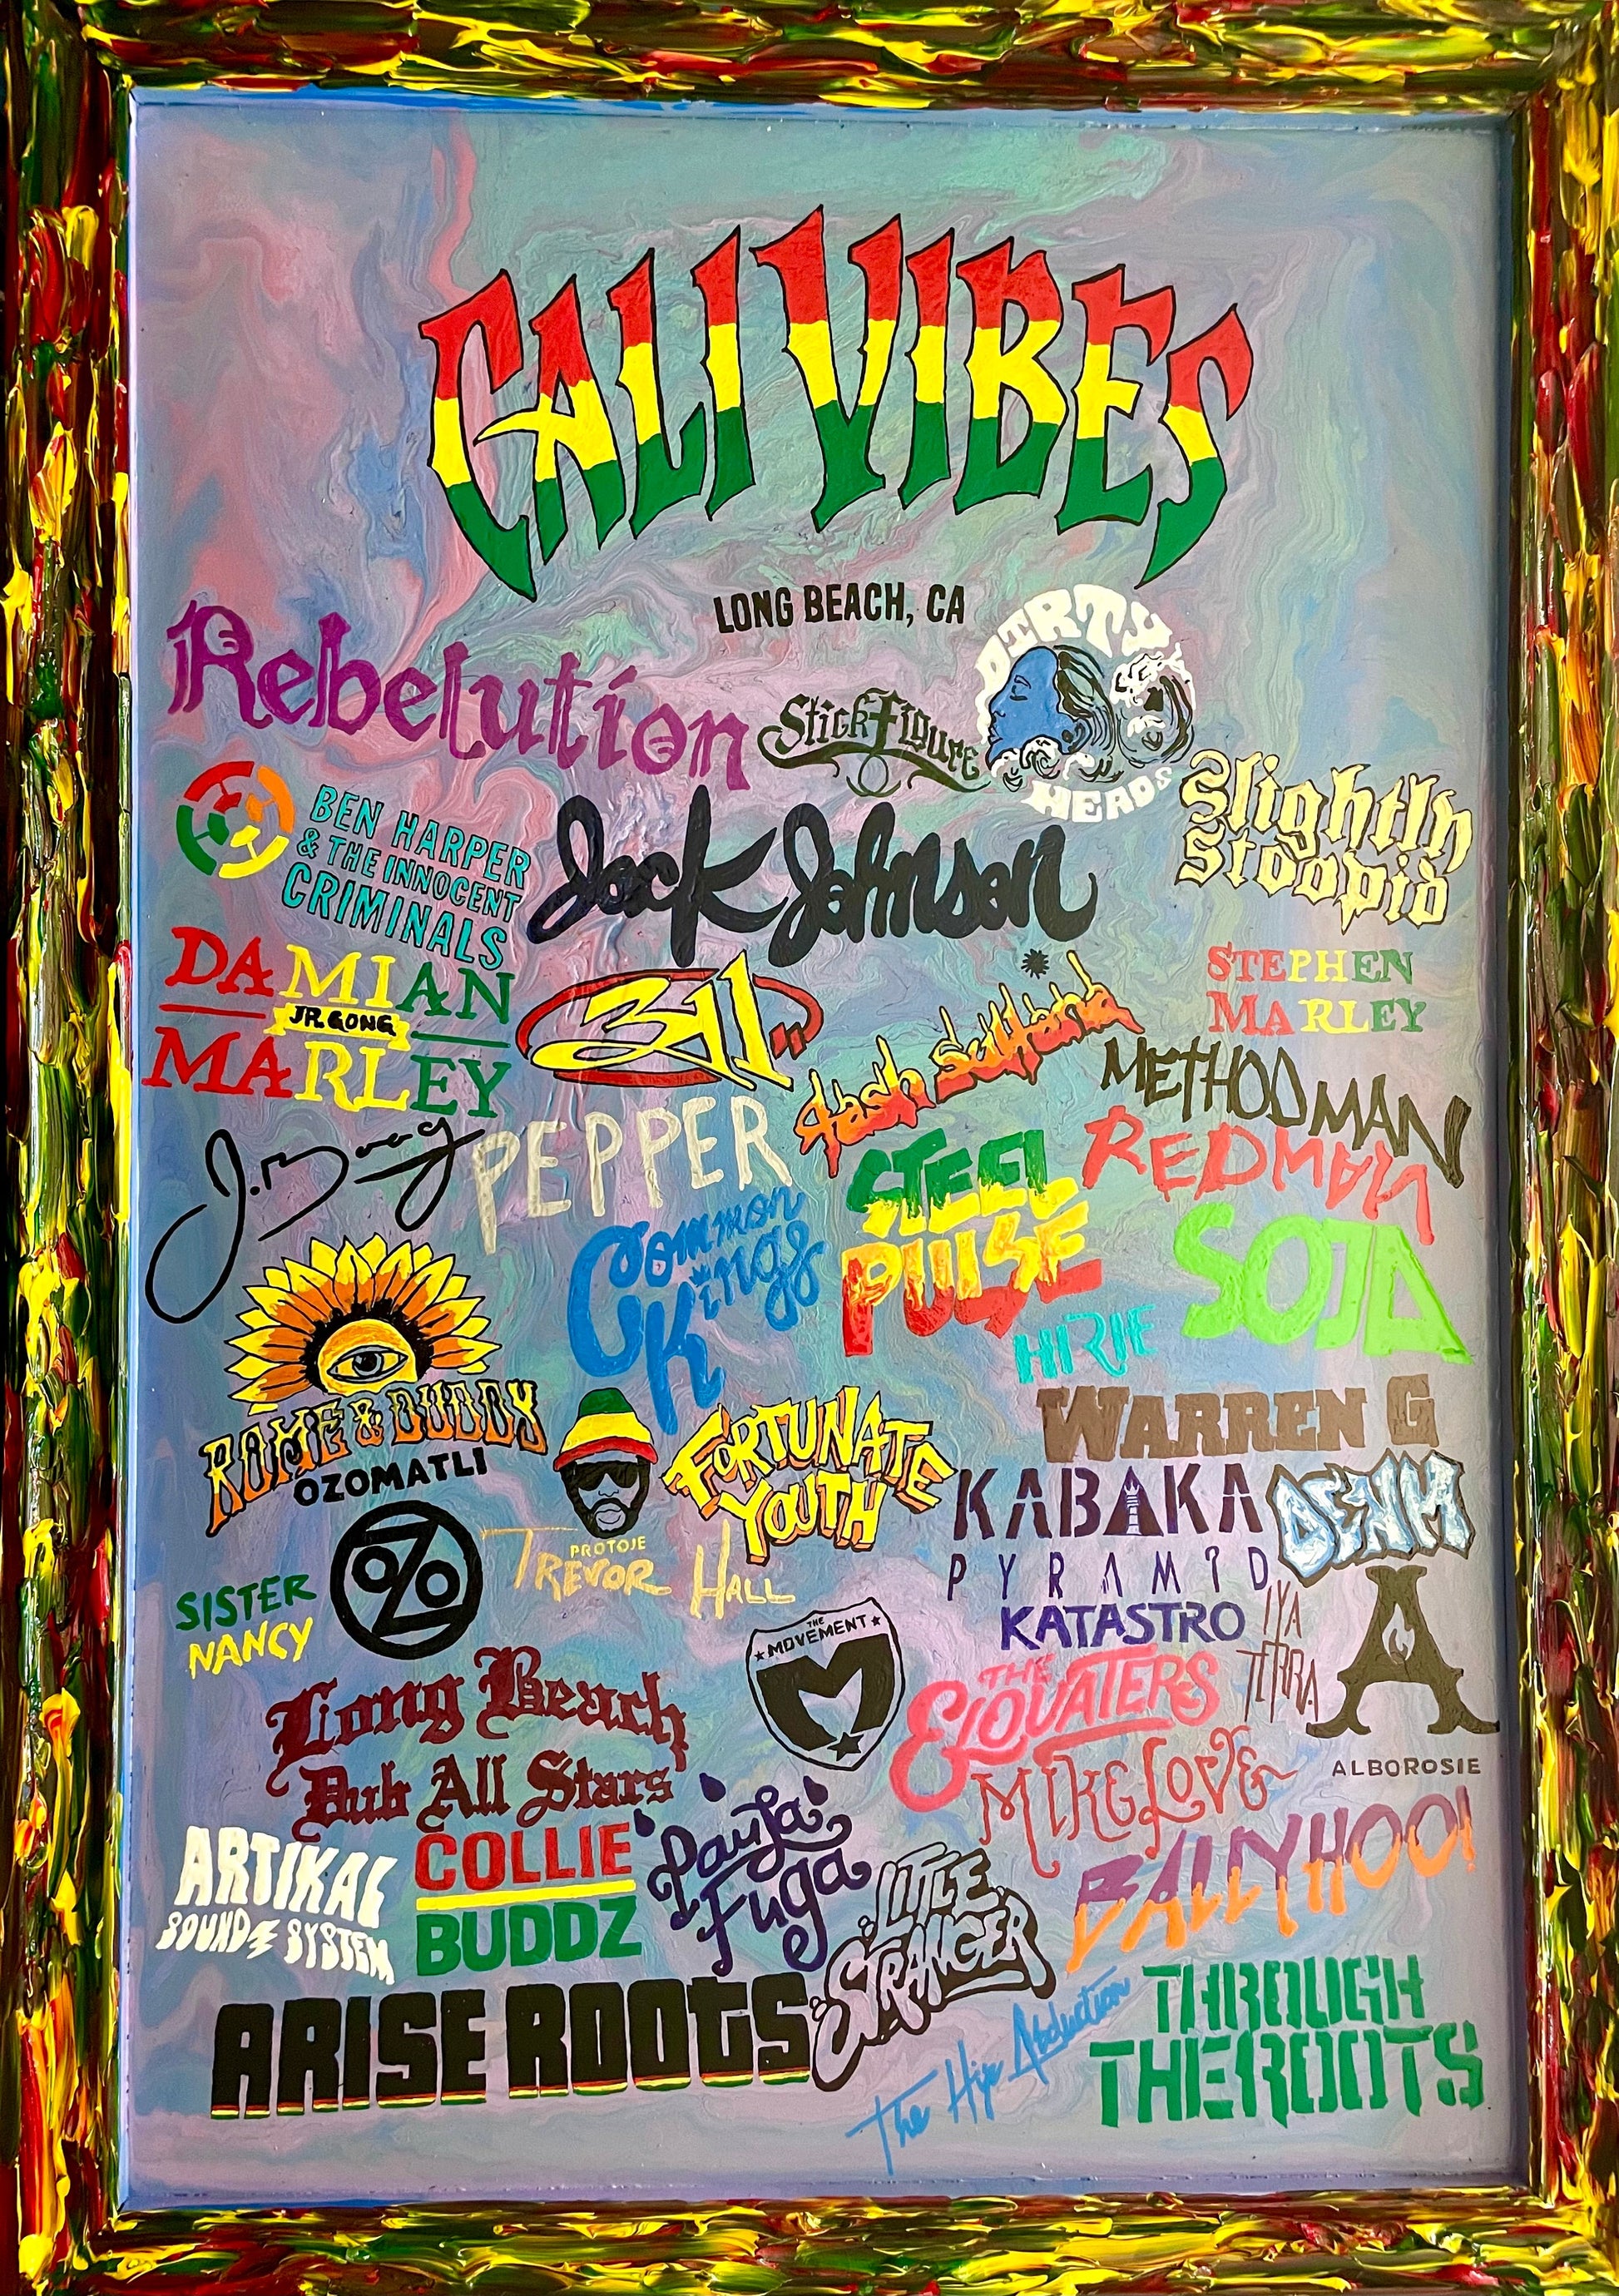 CALI VIBES
LONG BEACH, CA
Rebelution
Stick Figure
DIRTY
HEADS
Slightly
Stoopid
BEN HARPER
& THE INNOCENT
CRIMINALS
Jack Johnson
DAMIAN
JR. GONG
MARLEY
311
tash sultana
STEPHEN
MARLEY
METHOD MAN
REDMAN
J. Boog
PEPPER
Common
Kings
STEEL
PULSE
HIRIE
SOJA
ROME & DUDDY
OZOMATLI
OZO
PROTOJE
FORTUNATE
YOUTH
WARREN G
KABAKA
PYRAMID
DENM
TREVOR HALL
SISTER
NANCY
THE
MOVEMENT
M
KATASTRO
IYA
TERRA
A
ALBOROSIE
Long Beach
Dub All Stars
THE
ELOVATERS
MIKE LOVE
ARTIKAL
SOUND SYSTEM
COLLIE
BUDDZ
Paula
Fuga
LITTLE
STRANGER
BALLYHOO!
ARISE ROOTS
The Hip Abduction
THROUGH
THE ROOTS